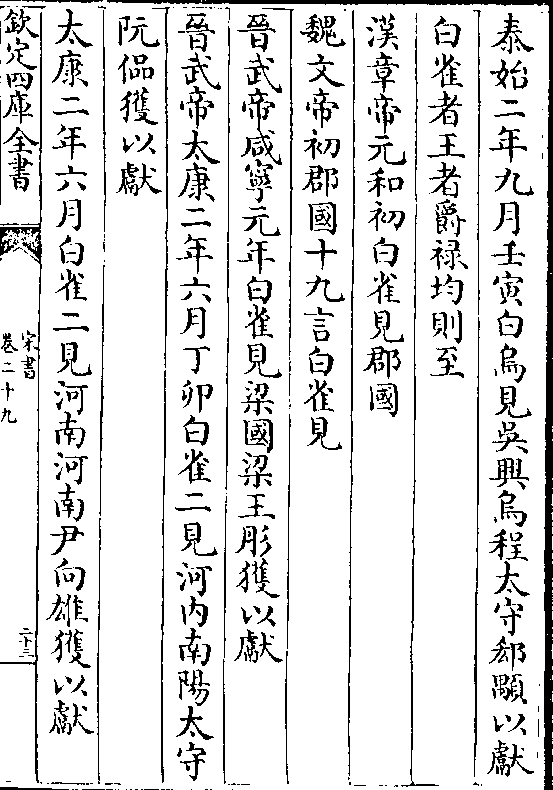 泰始二年九月壬寅白烏見吳興烏程太守郄顒以獻
白雀者王者爵祿均則至
漢章帝元和初白雀見郡國
魏文帝初郡國十九言白雀見
晉武帝咸寧元年白雀見梁國梁王肜獲以獻
晉武帝太康二年六月丁卯白雀二見河内南陽太守
阮侃獲以獻
太康二年六月白雀二見河南河南尹向雄獲以獻
欽定四庫全書
宋書
卷二十九
二十三